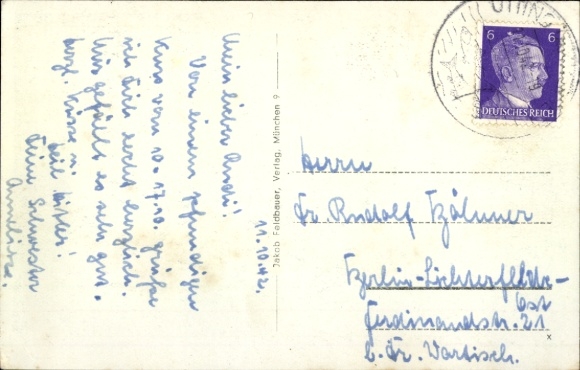 11.10.42.
Mein lieber Rudi!
Von einem
Kurs vom 10.-17.10. grüße
ich Dich recht herzlich.
Mir gefällt es sehr gut.
herzl. Grüße u.
Heil Hitler!
Deine Schwester
Anneliese.
Jakob Feldbauer, Verlag, München 9
6 6
DEUTSCHES REICH
Herrn
Dr. Rudolf
Berlin-Lichterfelde-
Ost
Ferdinandstr. 21
b. Dr. Vortisch.
x